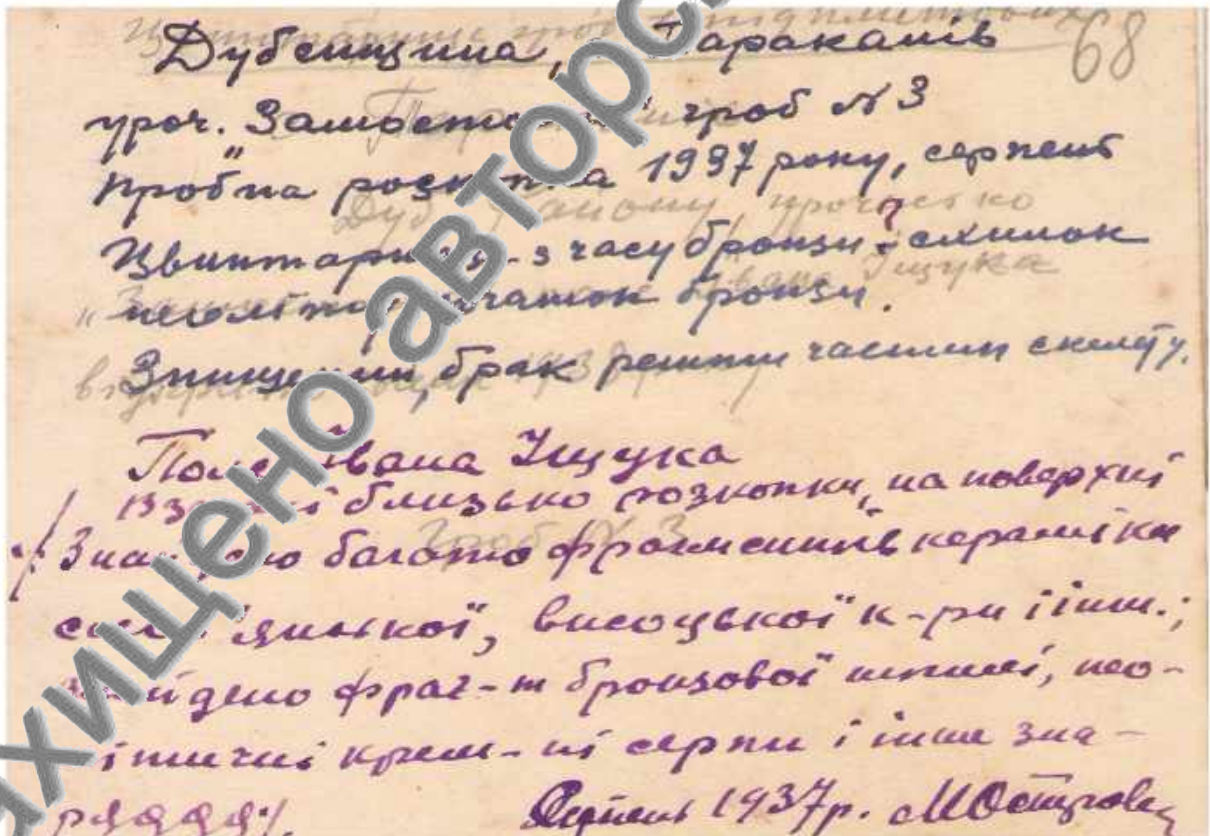 68
Дубенщина, Тараканів
уроч. "Замостя" гроб №3
Пробна розкопка 1937 року, серпень
Цвинтарище з часу бронзи ? схилок
неоліту початок бронзи.
Знищений, брак решти частин скелету.
Поле Івана Іщука
взагалі близько розкопки, на поверхні
знайдено багато фрагментів кераміки
слов'янської, висоцької к-ри і інш.;
знайдено фраг-т бронзової шпилі, нео-
літичні крем-ні серпи і інше зна-
ряддя/.
Серпень 1937р. М Острове